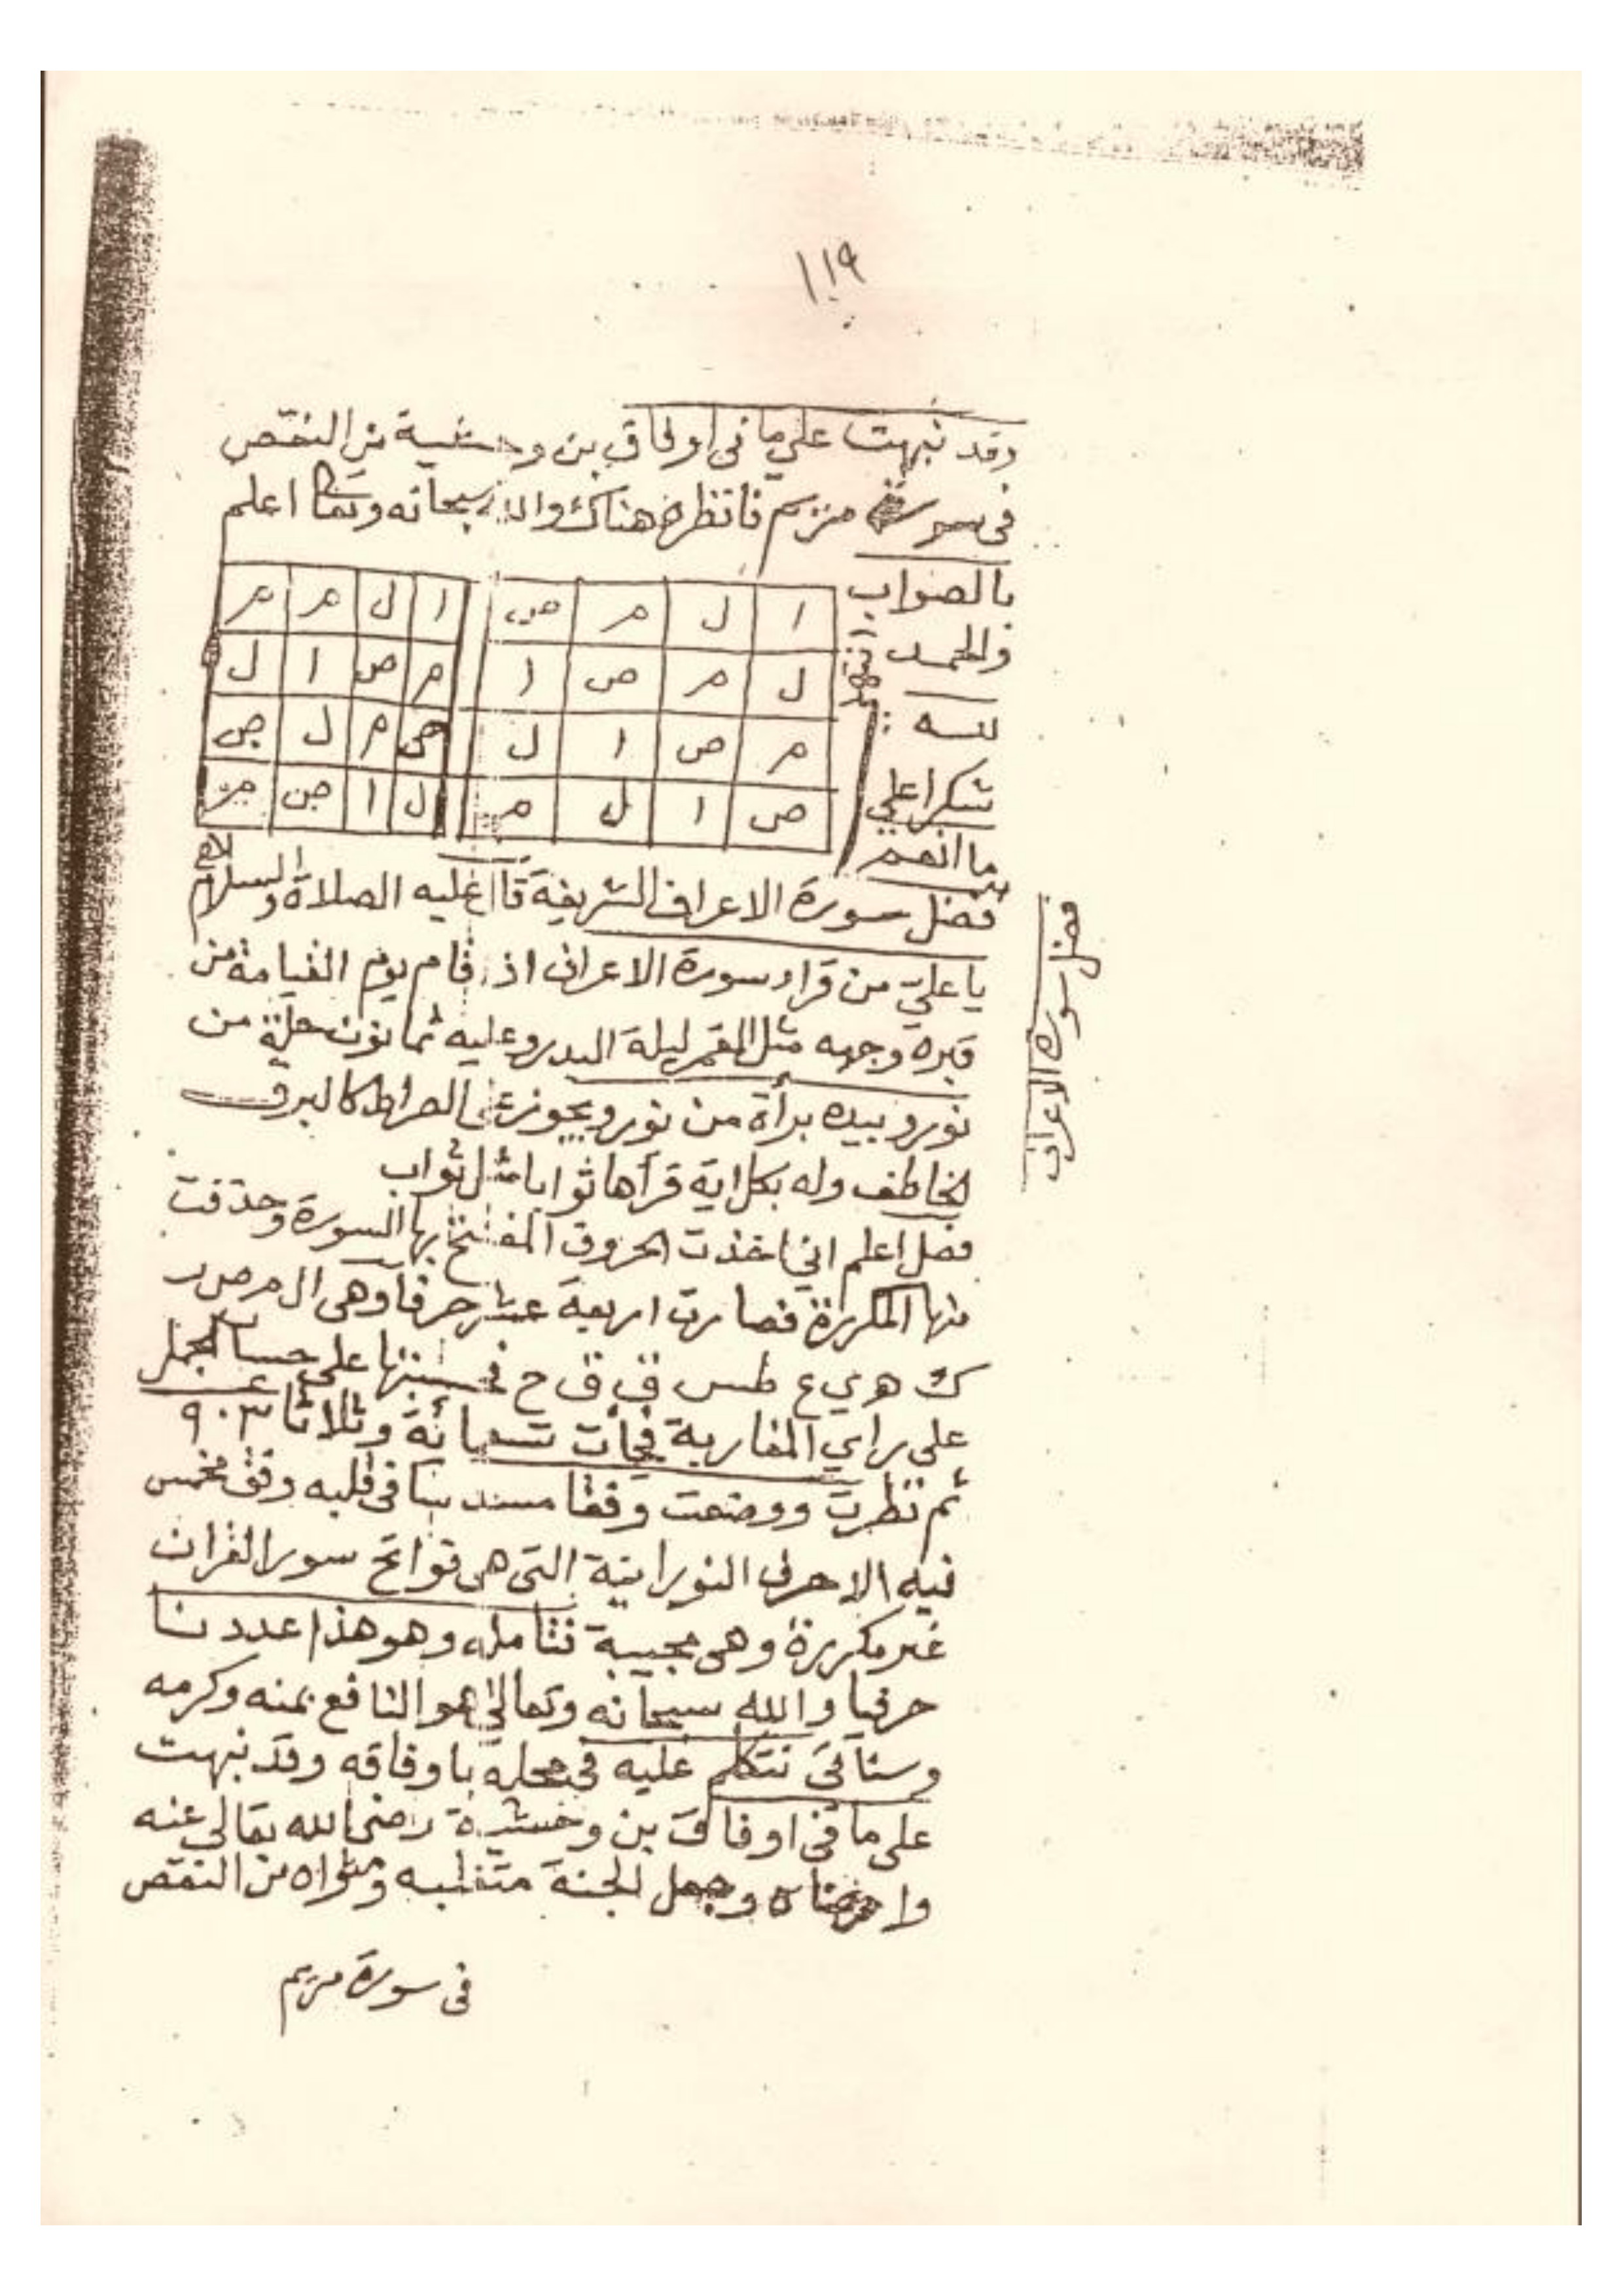 ١١٩
وقد نبهت على ما فى اوفاق بن وحشية من النقص
فى سورة مريم فانظره هناك والله سبحانه وتعالى اعلم
بالصواب
والحمد
لله
شكرا على
ما انعم
ا ل م ص ا ل م م
ل م ص ا م ص ا ل
م ص ا ل ص م ل ص
ص ا ل م ل ا ص م
فضل سورة الاعراف الشريفة قال عليه الصلاة والسلام
يا علي من قراء سورة الاعراف اذ قام يوم القيامة من
قبره وجهه مثل القمر ليلة البدر وعليه ثمانون حلة من
نور وبيده برأة من نور ويجوز على الصراط كالبرق
الخاطف وله بكل اية قرأها ثوابا مثل ثواب
فصل اعلم اني اخذت الحروف المفتتح بها السورة وحذفت
منها المكررة فصارت اربعة عشر حرفا وهى ال م ص ر
ك ه ي ع ط س ق ن ح فحسبتها على حساب الجمل
على راي المغاربة فجأت تسعمائة وثلاثا ٩٠٣
ثم نظرت ووضعت وفقا مسدسا فى قلبه وفق مخمس
فيه الاحرف النورانية التى هى فواتح سور القران
غير مكررة وهى عجيبة فتأمله وهو هذا عددنا
حرفيا والله سبحانه وتعالى هو النافع بمنه وكرمه
وسنأتى نتكلم عليه فى محله باوفاقه وقد نبهت
على ما فى اوفاق بن وحشية رضى الله تعالى عنه
وجعل الجنة متقلبه ومثواه من النقص
فى سورة مريم
فضل سورة الاعراف